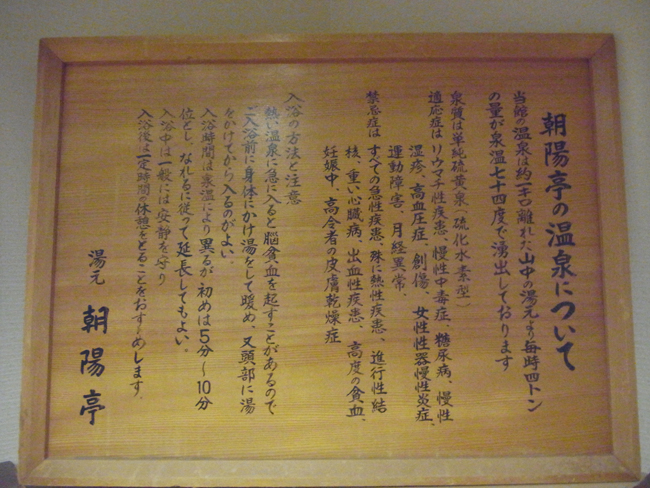 朝陽亭の温泉について
当館の温泉は約一キロ離れた山中の湯元より毎時四トン
の量が泉温七十四度で湧出しております
泉質は単純硫黄泉(硫化水素型)
適応症は リウマチ性疾患、慢性中毒症、糖尿病、慢性
湿疹、高血圧症、創傷、女性性器慢性炎症、
運動障害、月経異常、
禁忌症は すべての急性疾患、殊に熱性疾患、進行性結
核、重い心臓病、出血性疾患、高度の貧血
妊娠中、高令者の皮膚乾燥症
入浴の方法と注意
熱い温泉に急に入ると脳貧血を起すことがあるので
ご入浴前に身体にかけ湯をして暖め、又頭部に湯
をかけてから入るのがよい。
入浴時間は泉温により異るが初めは5分~10分
位とし、なれるに従って延長してもよい。
入浴中は一般には安静を守り
入浴後は一定時間の休憩をとることをおすゝめします。
湯元 朝陽亭